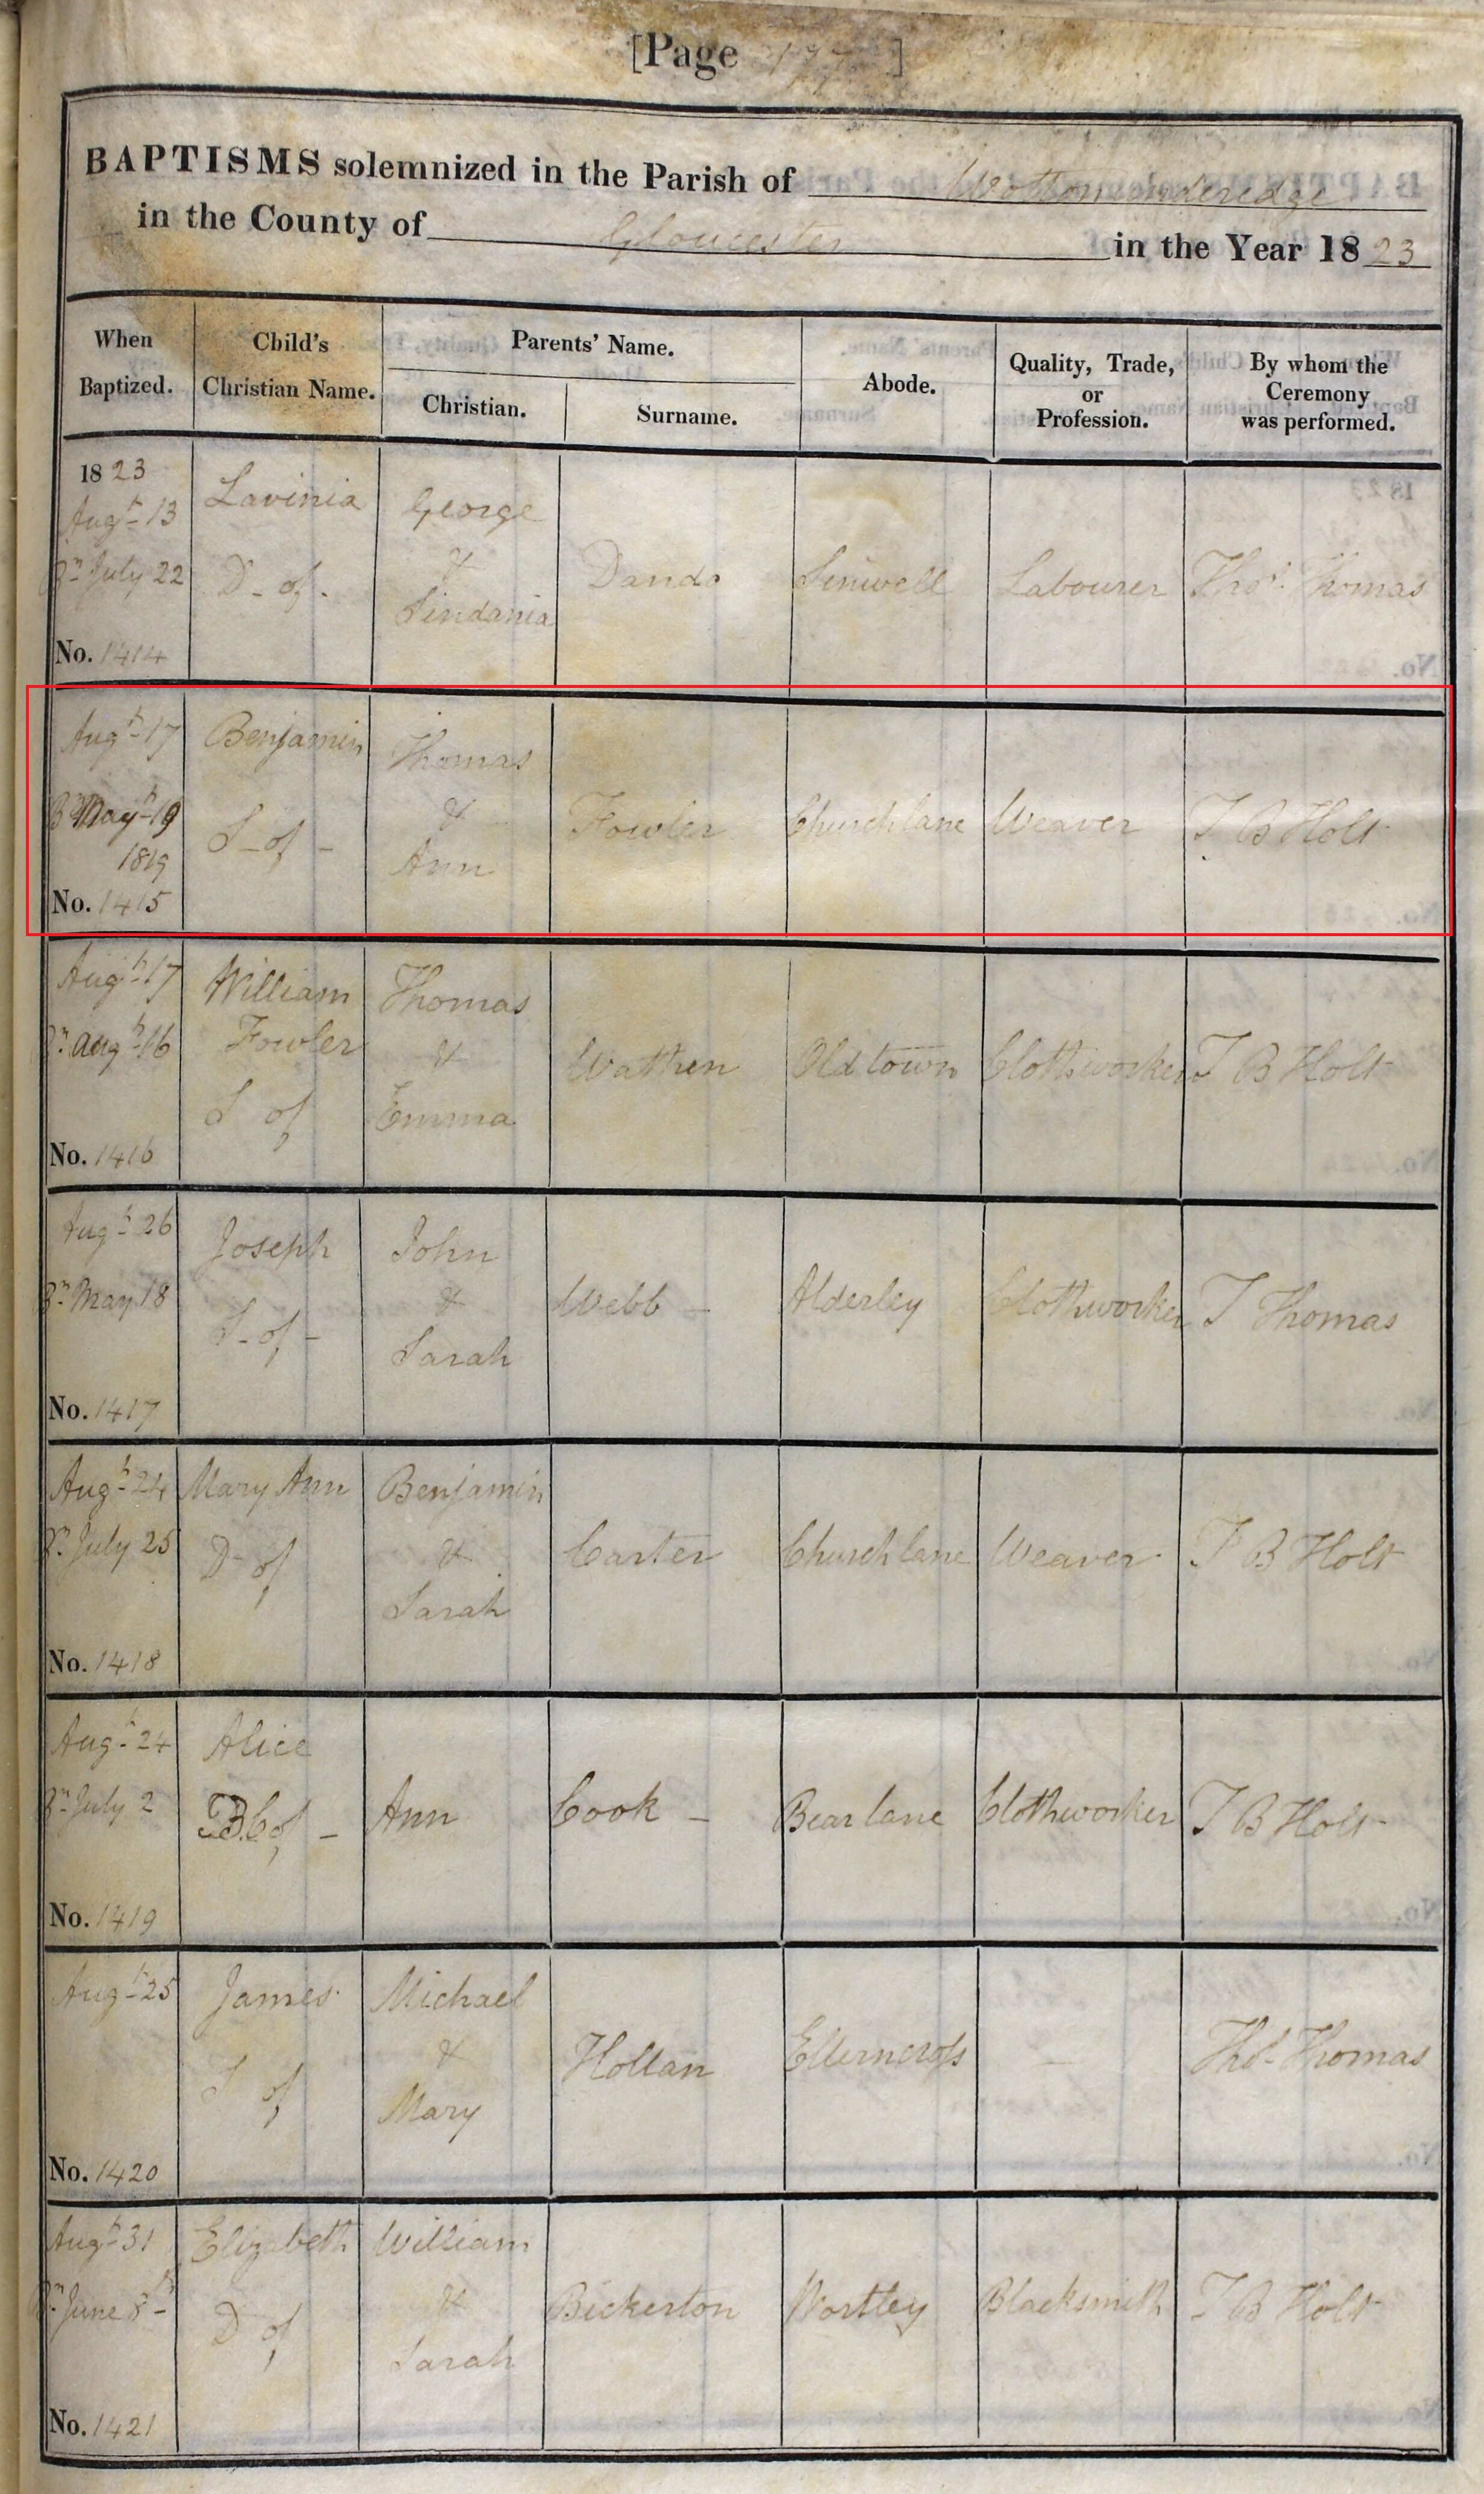 [Page 177]
BAPTISMS solemnized in the Parish of Wottonunderedge
in the County of Gloucester in the Year 1823
When Baptized. Child's Christian Name. Parents' Name. Christian. Surname. Abode. Quality, Trade, or Profession. By whom the Ceremony was performed.
1823
Augt 13
Bn July 22
No. 1414
Lavinia
D. of.
George
&
Sindania
Dando
Sinwell
Labourer
Thos. Thomas
Augt 17
Bn May 19
1819
No. 1415
Benjamin
S-of-
Thomas
&
Ann
Fowler
Church lane
Weaver
T B Holt
Augt 17
Bn Augt 16
No. 1416
William
Fowler
S of
Thomas
&
Emma
Wathen
Old town
Clothworker
T B Holt
Augt 26
Bn May 18
No. 1417
Joseph
S-of-
John
&
Sarah
Webb -
Alderley
Clothworker
T Thomas
Augt 24
Bn July 25
No. 1418
Mary Ann
D of
Benjamin
&
Sarah
Carter
Church lane
Weaver
T B Holt
Augt 24
Bn July 2
No. 1419
Alice
of -
Ann
Cook -
Bear lane
Clothworker
T B Holt
Augt 25
No. 1420
James
S of
Michael
&
Mary
Hollan
Ellerncross
-
Thos. Thomas
Augt 31
Bn June 8th
No. 1421
Elizabeth
D of
William
&
Sarah
Bickerton
Wortley
Blacksmith
T B Holt